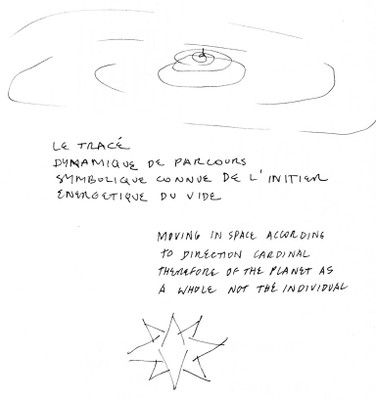 LE TRACÉ
DYNAMIQUE DE PARCOURS
SYMBOLIQUE CONNUE DE L'INITIER
ENERGETIQUE DU VIDE
MOVING IN SPACE ACCORDING
TO DIRECTION CARDINAL
THEREFORE OF THE PLANET AS
A WHOLE NOT THE INDIVIDUAL